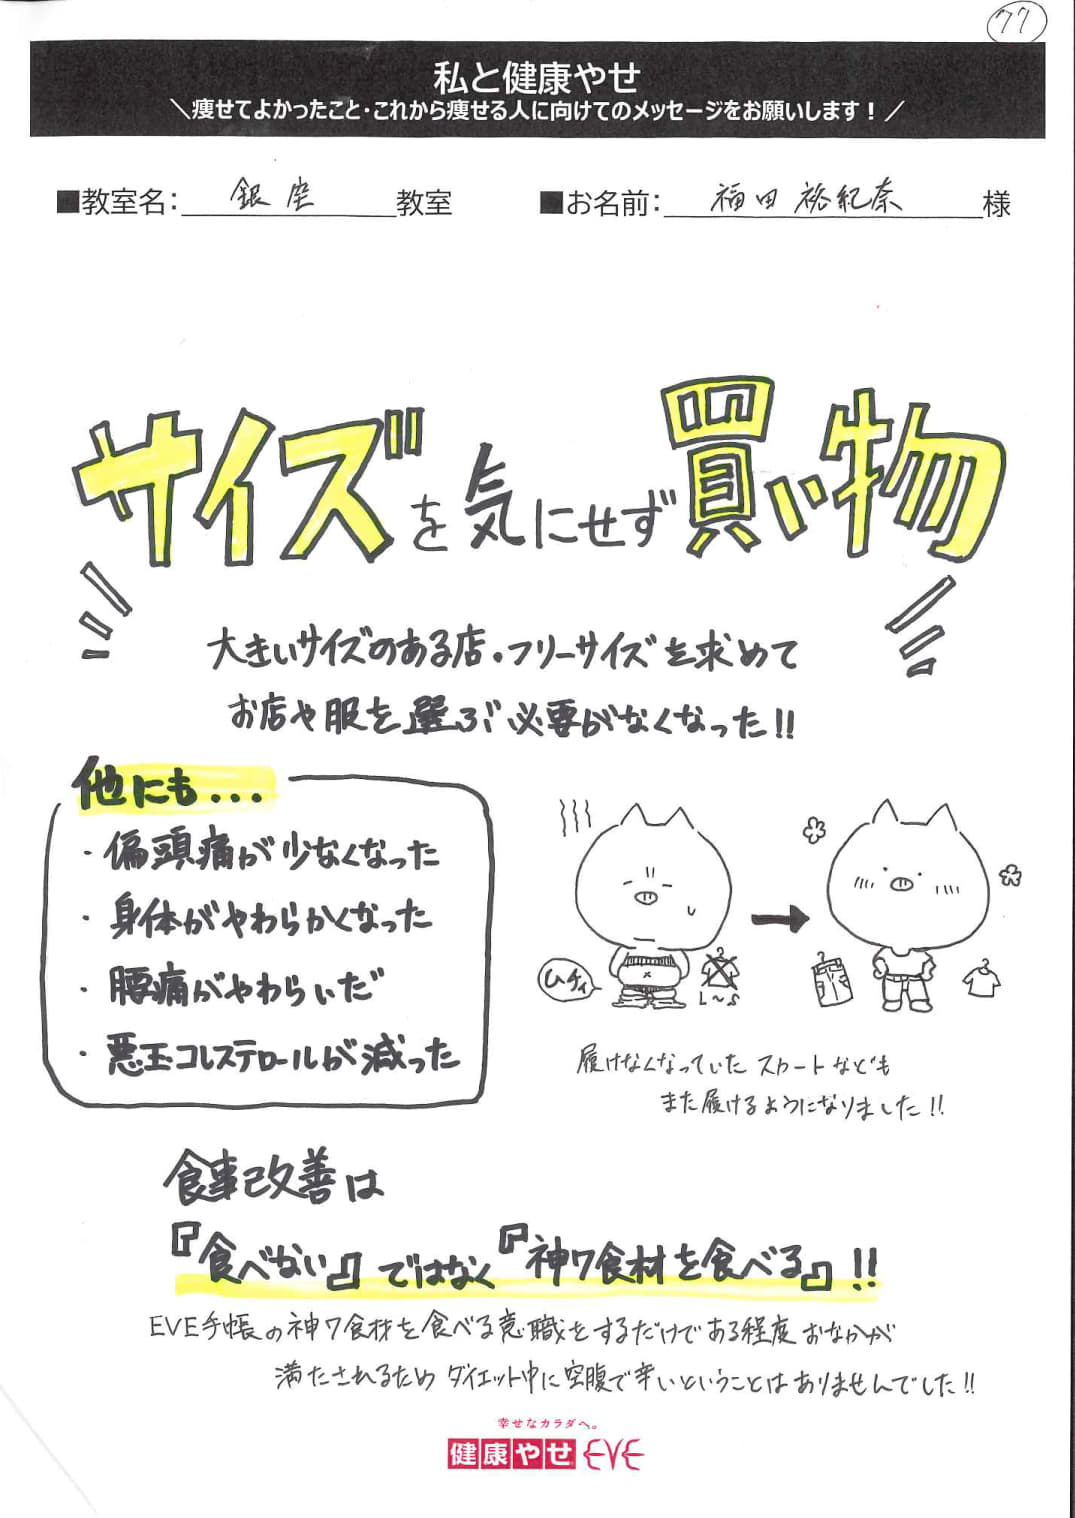 77
私と健康やせ
＼痩せてよかったこと・これから痩せる人に向けてのメッセージをお願いします！／
■教室名：銀座教室 ■お名前：福田裕紀奈様
サイズを気にせず買い物
大きいサイズのある店・フリーサイズを求めて
お店や服を選ぶ必要がなくなった!!
他にも...
・偏頭痛が少なくなった
・身体がやわらかくなった
・腰痛がやわらいだ
・悪玉コレステロールが減った
ムチィ
L〜S
履けなくなっていたスカートなども
また履けるようになりました!!
食事改善は
『食べない』ではなく『神7食材を食べる』!!
EVE手帳の神7食材を食べる意職をするだけである程度おなかが
満たされるためダイエット中に空腹で辛いということはありませんでした!!
幸せなカラダへ。
健康やせEVE